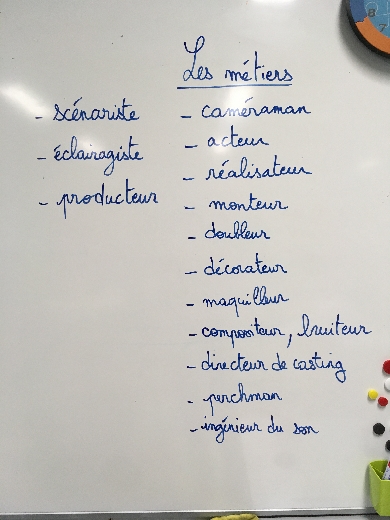 Les métiers
- scénariste
- éclairagiste
- producteur
- caméraman
- acteur
- réalisateur
- monteur
- doubleur
- décorateur
- maquilleur
- compositeur, bruiteur
- directeur de casting
- perchman
- ingénieur du son